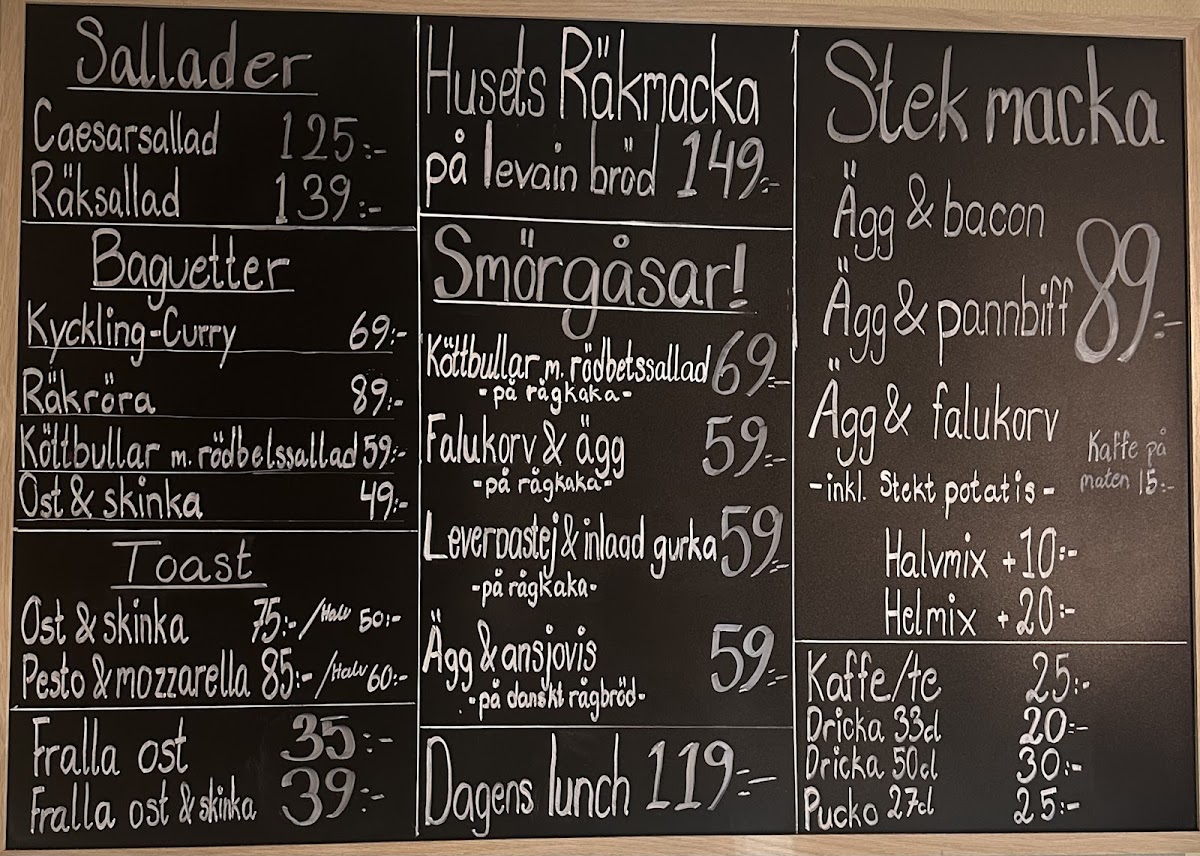 Sallader
Caesarsallad 125:-
Räksallad 139:-
Baguetter
Kyckling-Curry 69:-
Räkröra 89:-
Köttbullar m. rödbetssallad 59:-
Ost & skinka 49:-
Toast
Ost & skinka 75:- /Halv 50:-
Pesto & mozzarella 85:- /Halv 60:-
Fralla ost 35:-
Fralla ost & skinka 39:-
Husets Räkmacka
på levain bröd 149:-
Smörgåsar!
Köttbullar m. rödbetssallad 69:-
-på rågkaka-
Falukorv & ägg 59:-
-på rågkaka-
Leverpastej & inlagd gurka 59:-
-på rågkaka-
Ägg & ansjovis 59:-
-på danskt rågbröd-
Dagens lunch 119:-
Stek macka
Ägg & bacon
Ägg & pannbiff 89:-
Ägg & falukorv
-inkl. Stekt potatis-
Kaffe på
maten 15:-
Halvmix +10:-
Helmix +20:-
Kaffe/te 25:-
Dricka 33cl 20:-
Dricka 50cl 30:-
Pucko 27cl 25:-